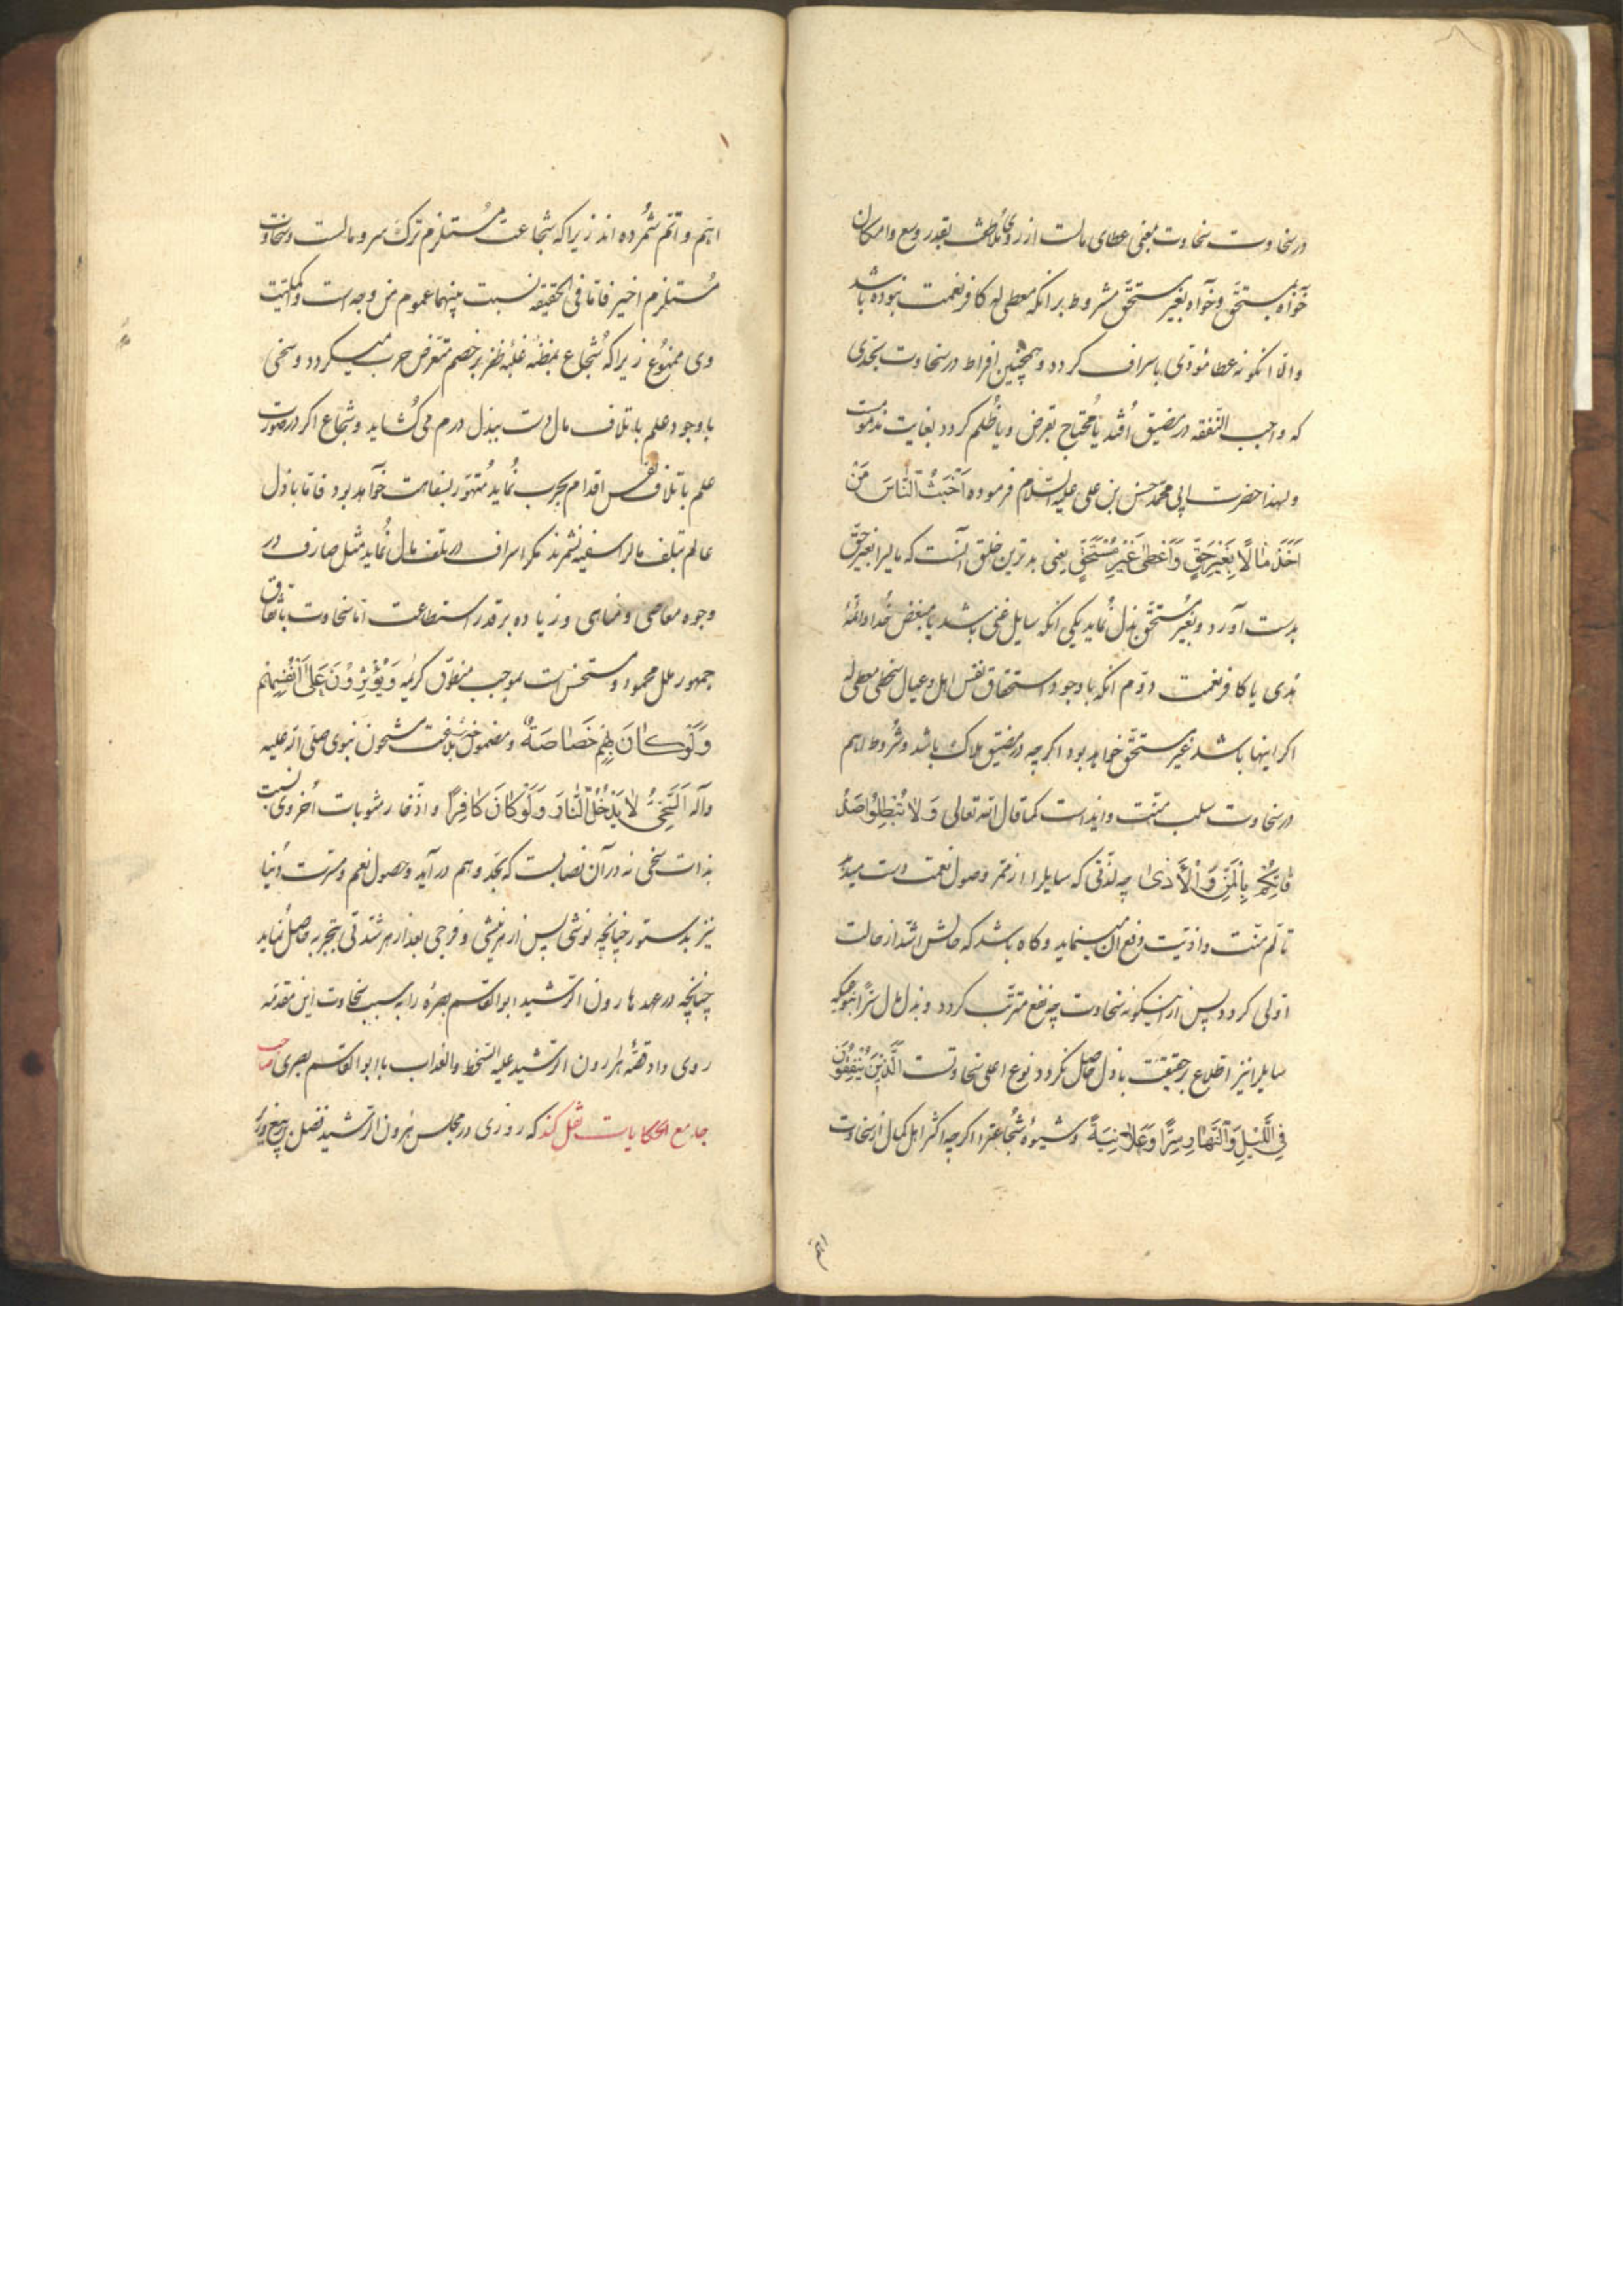 در سخاوت سخاوت بمعنی عطای مالست از روی ملاطفت بقدر وسع و امکان
خواه بمستحق و خواه بغیر مستحق مشروط بر انکه معطی له کافر نعمت نبوده باشد
والا انکونه عطا مؤدی باسراف کردد و همچنین افراط در سخاوت بحدی
که واجب النفقه در مضیق افتد یا محتاج بقرض و یا ظلم کردد بغایت مذمومست
و لهذا حضرت ابی محمد حسن بن علی علیه السلام فرموده اَخْبَثُ النّاسَ مَنْ
اَخَذَ مٰالًا بِغَیْرِ حَقٍّ وَ اَعْطیٰ غَیْرِ مُسْتَحَقٍّ یعنی بدترین خلق آنست که مالیرا بغیر حق
بدست آورد و بغیر مستحق بذل نماید یکی انکه سایل غنی باشد یا مبغض خدا و ائمهٔ
هدی یا کافر نعمت دوم انکه با وجود استحقاق نفس اهل و عیال سخی معطی له
اکر اینها باشد غیر مستحق خواهد بود اکر چه در مضیق هلاک باشد و شروط اهم
در سخاوت سلب منت و ایذاست کما قال الله تعالی وَ لاٰ تُبْطِلُوا صَدَ
قٰاتِکُمْ بِالْمَنِّ وَ الْاَذیٰ چه لذتی که سایلرا از ممر وصول نعمت دست میدهد
تالم منت و اذیت رفع آن مینماید و کاه باشد که حالش اشد از حالت
اولی کردد پس از اینکونه سخاوت چه نفع مترتب کردد و بذل مال سرا بنوعیکه
سایلرا نیز اطلاع بر حقیقت باذل حاصل نکردد نوع اعلی سخاوتست اَلَّذینَ یُنْفِقُونَ
فِی اللَّیْلِ وَ النَّهٰارِ سِرًّا وَ عَلاٰنِیَةً و شیوهٔ شجاعترا اکر چه اکثر اهل کمال از سخاوت
اهم
اهم و اتم شمرده اند زیرا که شجاعت مستلزم ترک سر و مالست و سخاوت
مستلزم اخیر فاما فی الحقیقه نسبت بینهما عموم من وجه است و کلیت
وی ممنوع زیرا که شجاع بمظنهٔ غلبهٔ ظفر بر خصم متعرض حرب میکردد و سخی
با وجود علم باتلاف مال دست ببذل درم می کشاید و شجاع اکر در صورت
علم باتلاف نفس اقدام بحرب نماید متهور بسفاهت خواهد بود فاما باذل
عالم بتلف مالرا سفیه نشمرند مکر اسراف در تلف مال نماید مثل صارف در
وجوه معاصی و مناهی و زیاده بر قدر استطاعت اما سخاوت باتفاق
جمهور ملل محمود و مستحسن است بموجب منطوق کریمه وَ یُؤْثِرُونَ عَلیٰ اَنْفُسِهِمْ
وَ لَوْ کٰانَ بِهِمْ خَصٰاصَةٌ و مضمون خبر بلاغت مشحون نبوی صلی الله علیه
و آله اَلسَّخِیُّ لاٰ یَدْخُلُ النّٰارَ وَ لَوْ کٰانَ کٰافِرًا و اذخار مثوبات اخروی نسبت
بذات سخی نه در آن نصابست که بحد وهم در آید و حصول نعم و مسرت دنیا
نیز بدستور چنانچه نوشی پس از هر نیشی و فرحی بعد از هر شدتی بتجربه حاصل نماید
چنانچه در عهد هارون الرشید ابوالقاسم بصره را به سبب سخاوت این مقدمه
روی داد قصهٔ هارون الرشید علیه السخط والعذاب با ابوالقاسم بصری صاحب
جامع الحکایات نقل کند که روزی در مجلس هرون الرشید فضل بن ربیع وزیر